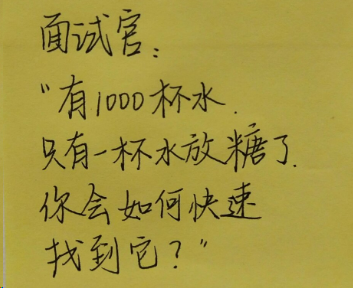 面试官：
“有1000杯水.
只有一杯水放糖了.
你会如何快速
找到它？”